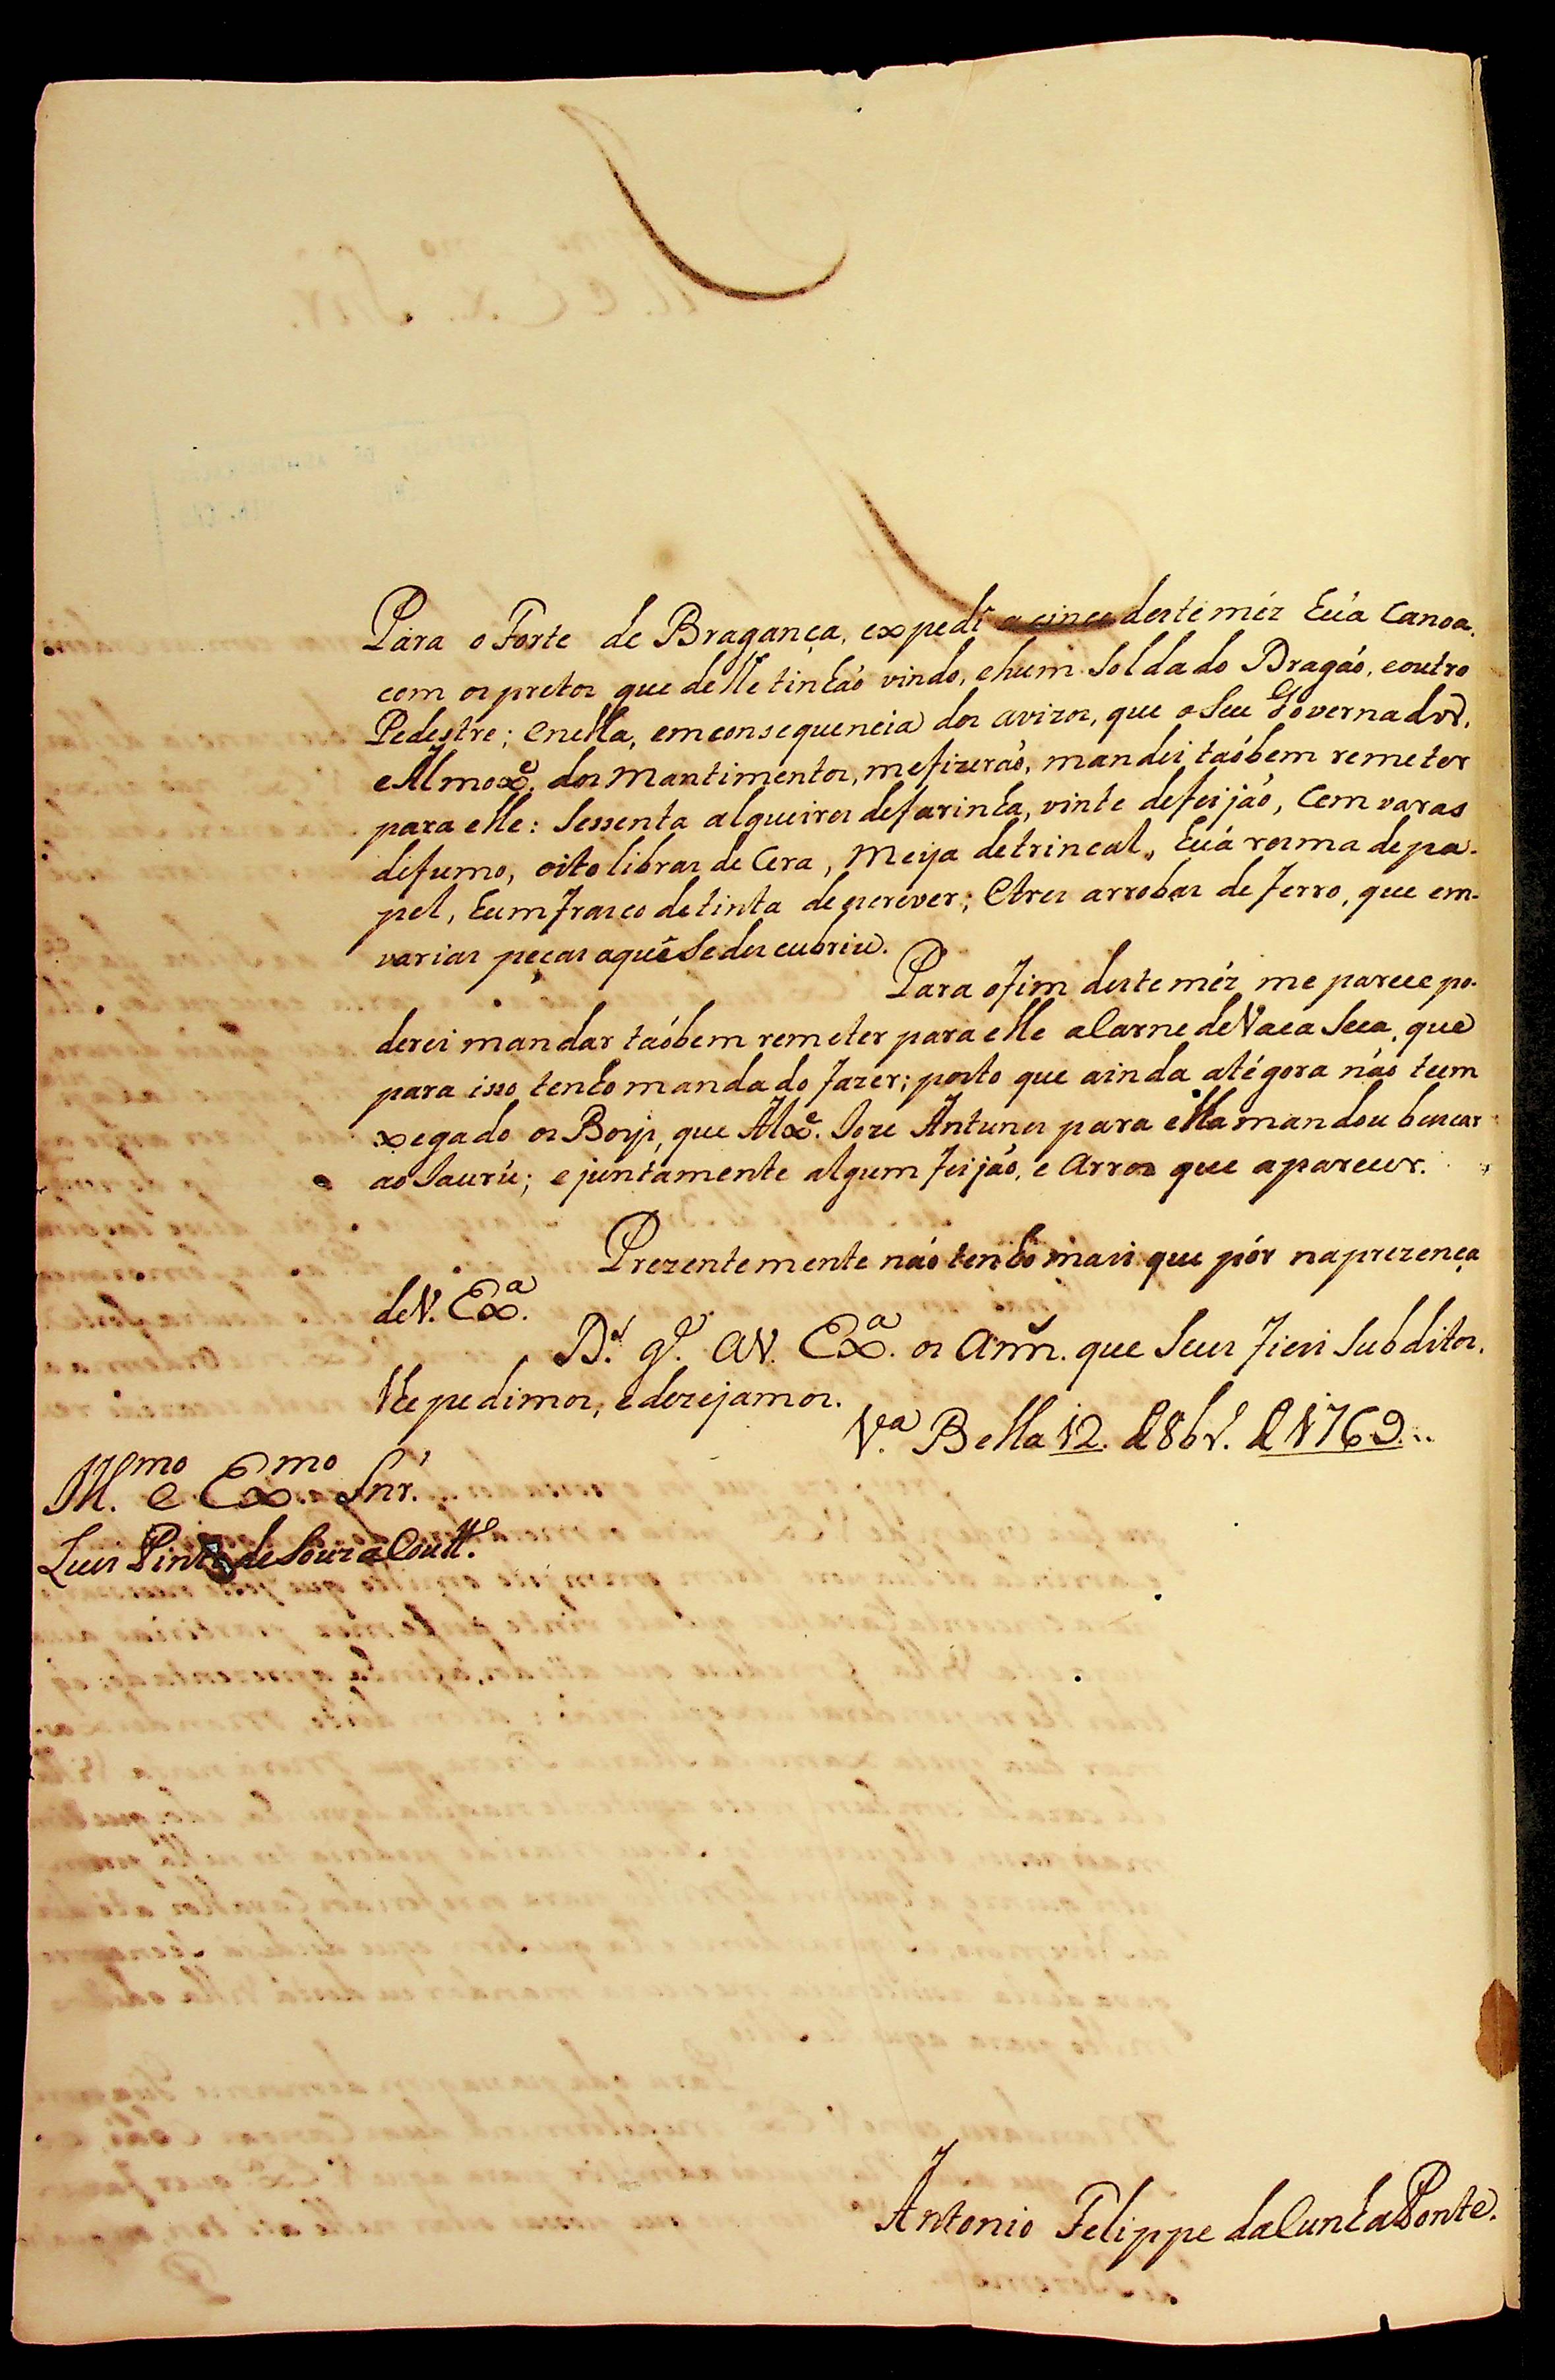 Para o Forte de Bragança, expedî a cinco deste méz húa Canoa,
com os pretos que delle tinhaó vindo, e hum Soldado Dragaó, e outro
Pedestre; e nella, em consequencia dos avizos, que o Seu Governador,
e Almoxe. dos Mantimentos, me fizeraó, mandei taóbem remeter
para elle: Sessenta alqueires de farinha, vinte de feijaó, Cem varas
de fumo, oito libras de Cera, Meya de trincal, húa resma de pa-
pel, hum frasco de tinta de escrever; e tres arrobas de ferro, que em-
varias peças aquî Se descubriu.
Para o fim deste méz me parece po-
derei mandar taóbem remeter para elle a Carne de Vaca Seca, que
para isso tenho mandado fazer; posto que ainda atégora naó tem
xegado os Boys, que Alxe. Joze Antunes para ella mandou buscar
ao Jaurú; e juntamente algum feijaó, e Arros que aparecer.
Prezentemente naó tenho mais que pór na prezença
de V. Exa.
Ds. ge. a V. Exa. os anns. que Seus fieis Subditos,
lhe pedimos, e dezejamos.
Va. Bella 12. de 8bro. de 1769..
Illmo. e Exmo. Snr.
Luis Pinto de Souza Coutto.
Antonio Felippe da Cunha Ponte.